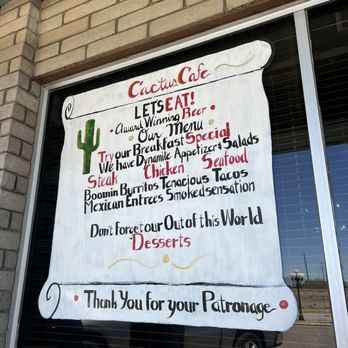 Cactus Cafe
LETS EAT!
• Award Winning Beer •
Our Menu
Try our Breakfast Special
We have Dynamite Appetizers & Salads
Steak Chicken Seafood
Boomin Burritos Tenacious Tacos
Mexican Entrees Smokedsensation
Don't forget our Out of this World
Desserts
Thank You for your Patronage